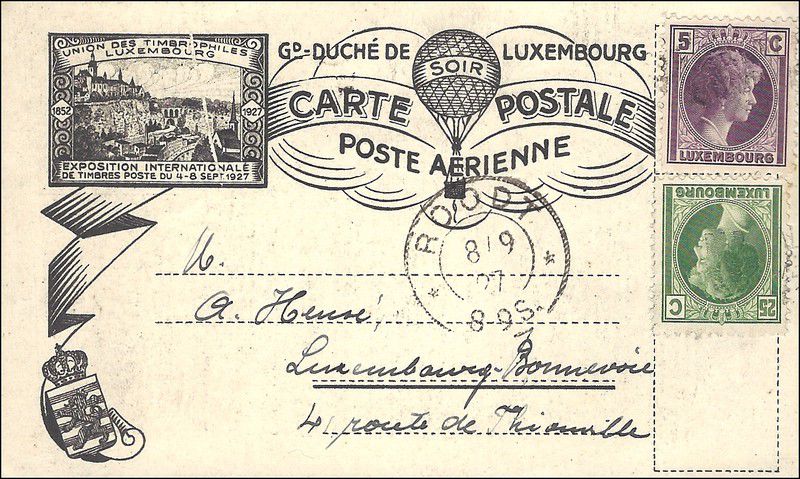 UNION DES TIMBROPHILES
LUXEMBOURG
1852 1927
EXPOSITION INTERNATIONALE
DE TIMBRES POSTE DU 4-8 SEPT. 1927
GD-DUCHÉ DE LUXEMBOURG
SOIR
CARTE POSTALE
POSTE AÉRIENNE
5 C
LUXEMBOURG
LUXEMBOURG
25 C
ROODT
8/9
27
8-9S.
M.
A. Heusé,
Luxembourg-Bonnevoie
4, route de Thionville